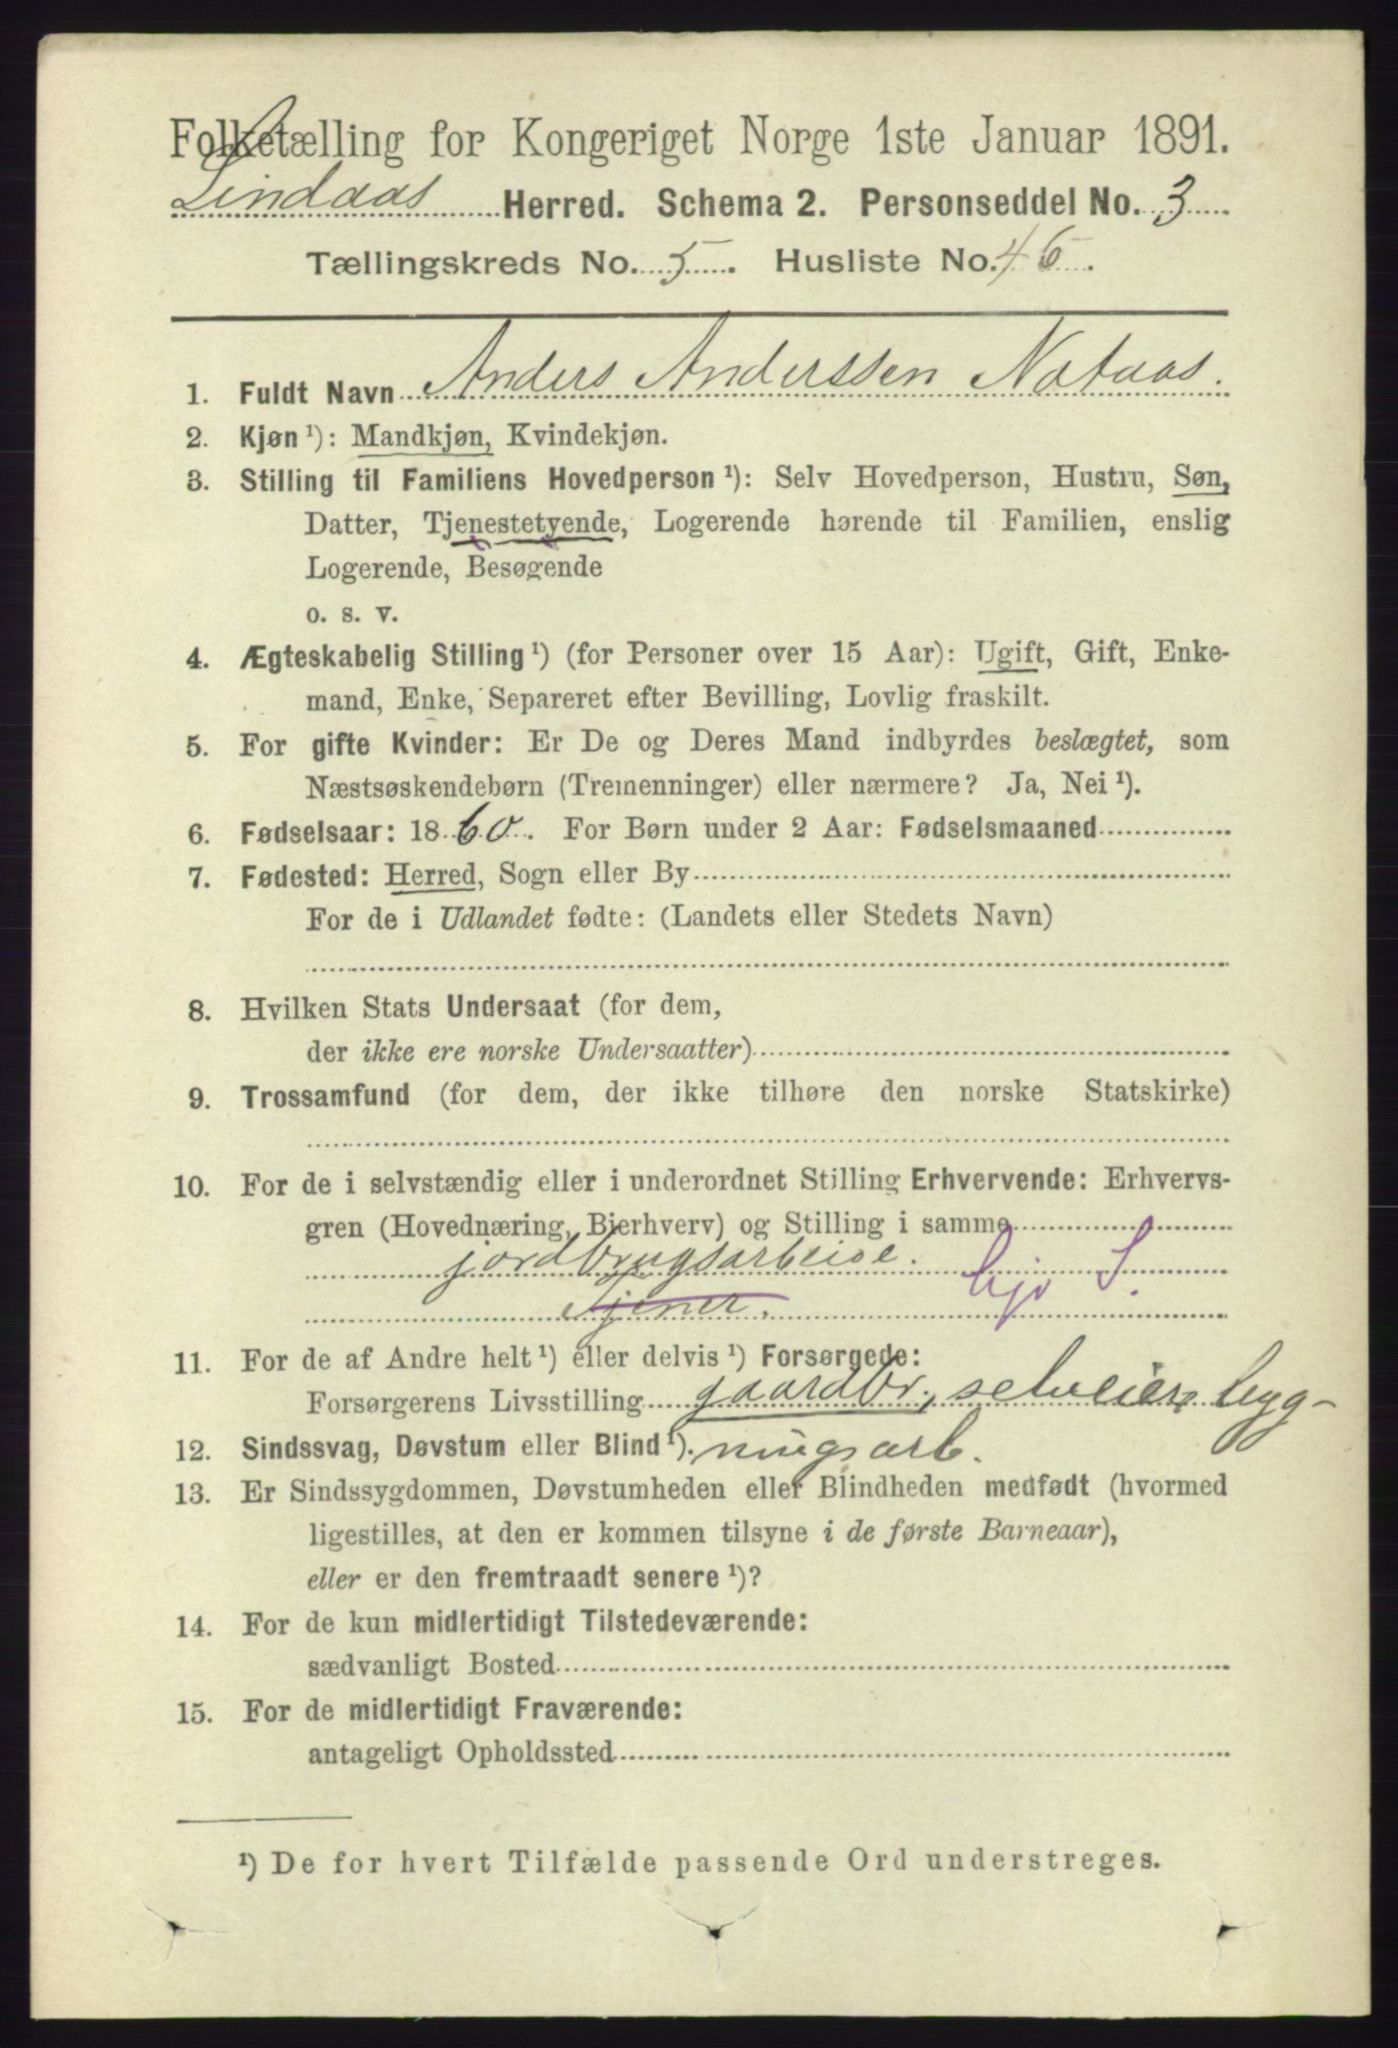 Folketælling for Kongeriget Norge 1ste Januar 1891.
Lindaas Herred. Schema 2. Personseddel No. 3
Tællingskreds No. 5. Husliste No. 46.
1. Fuldt Navn Anders Anderssen Nataas.
2. Kjøn ¹): Mandkjøn, Kvindekjøn.
3. Stilling til Familiens Hovedperson ¹): Selv Hovedperson, Hustru, Søn,
Datter, Tjenestetyende, Logerende hørende til Familien, enslig
Logerende, Besøgende
o. s. v.
4. Ægteskabelig Stilling ¹) (for Personer over 15 Aar): Ugift, Gift, Enke-
mand, Enke, Separeret efter Bevilling, Lovlig fraskilt.
5. For gifte Kvinder: Er De og Deres Mand indbyrdes beslægtet, som
Næstsøskendebørn (Tremenninger) eller nærmere? Ja, Nei ¹).
6. Fødselsaar: 1860. For Børn under 2 Aar: Fødselsmaaned
7. Fødested: Herred, Sogn eller By
For de i Udlandet fødte: (Landets eller Stedets Navn)
8. Hvilken Stats Undersaat (for dem,
der ikke ere norske Undersaatter)
9. Trossamfund (for dem, der ikke tilhøre den norske Statskirke)
10. For de i selvstændig eller i underordnet Stilling Erhvervende: Erhvervs-
gren (Hovednæring, Bierhverv) og Stilling i samme
jordbrugsarbeide.
Tjener.
11. For de af Andre helt ¹) eller delvis ¹) Forsørgede:
Forsørgerens Livsstilling gaardbr., selveier, byg-
12. Sindssvag, Døvstum eller Blind ¹). ningsarb.
13. Er Sindssygdommen, Døvstumheden eller Blindheden medfødt (hvormed
ligestilles, at den er kommen tilsyne i de første Barneaar),
eller er den fremtraadt senere ¹)?
14. For de kun midlertidigt Tilstedeværende:
sædvanligt Bosted
15. For de midlertidigt Fraværende:
antageligt Opholdssted
¹) De for hvert Tilfælde passende Ord understreges.